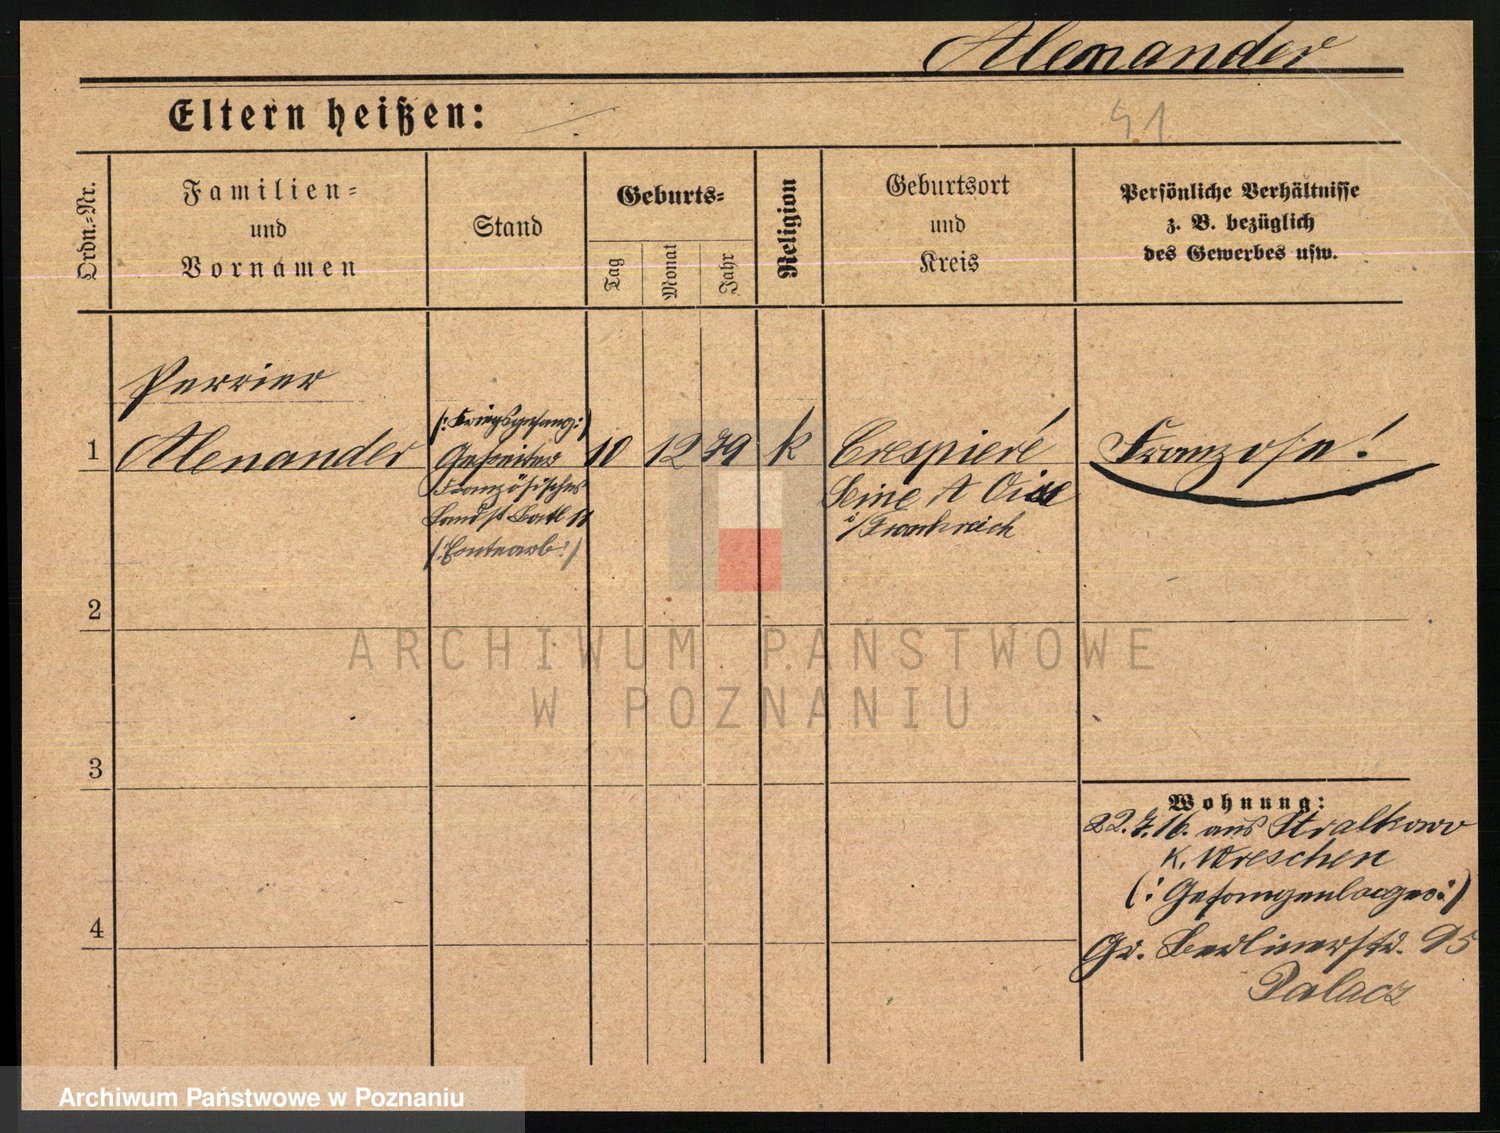 Alexander
Eltern heißen:
41
Ordn.-Nr.
Familien-
und
Vornamen
Stand
Geburts-
Tag
Monat
Jahr
Religion
Geburtsort
und
Kreis
Persönliche Verhältnisse
z. B. bezüglich
des Gewerbes usw.
1
Perrier
Alexander
(: Kriegsgefang:)
Gefreiter
Französisches
Landst Batl 11
10
12
79
k
Crespieré
Seine et Oise
i/Frankreich
Franzose!
2
3
4
Wohnung:
22.7.16. aus Stralkowo
K. Wreschen
(: Gefangenlager:)
Gr. Berlinerstr. 95
Palacz
ARCHIWUM PAŃSTWOWE
W POZNANIU
Archiwum Państwowe w Poznaniu